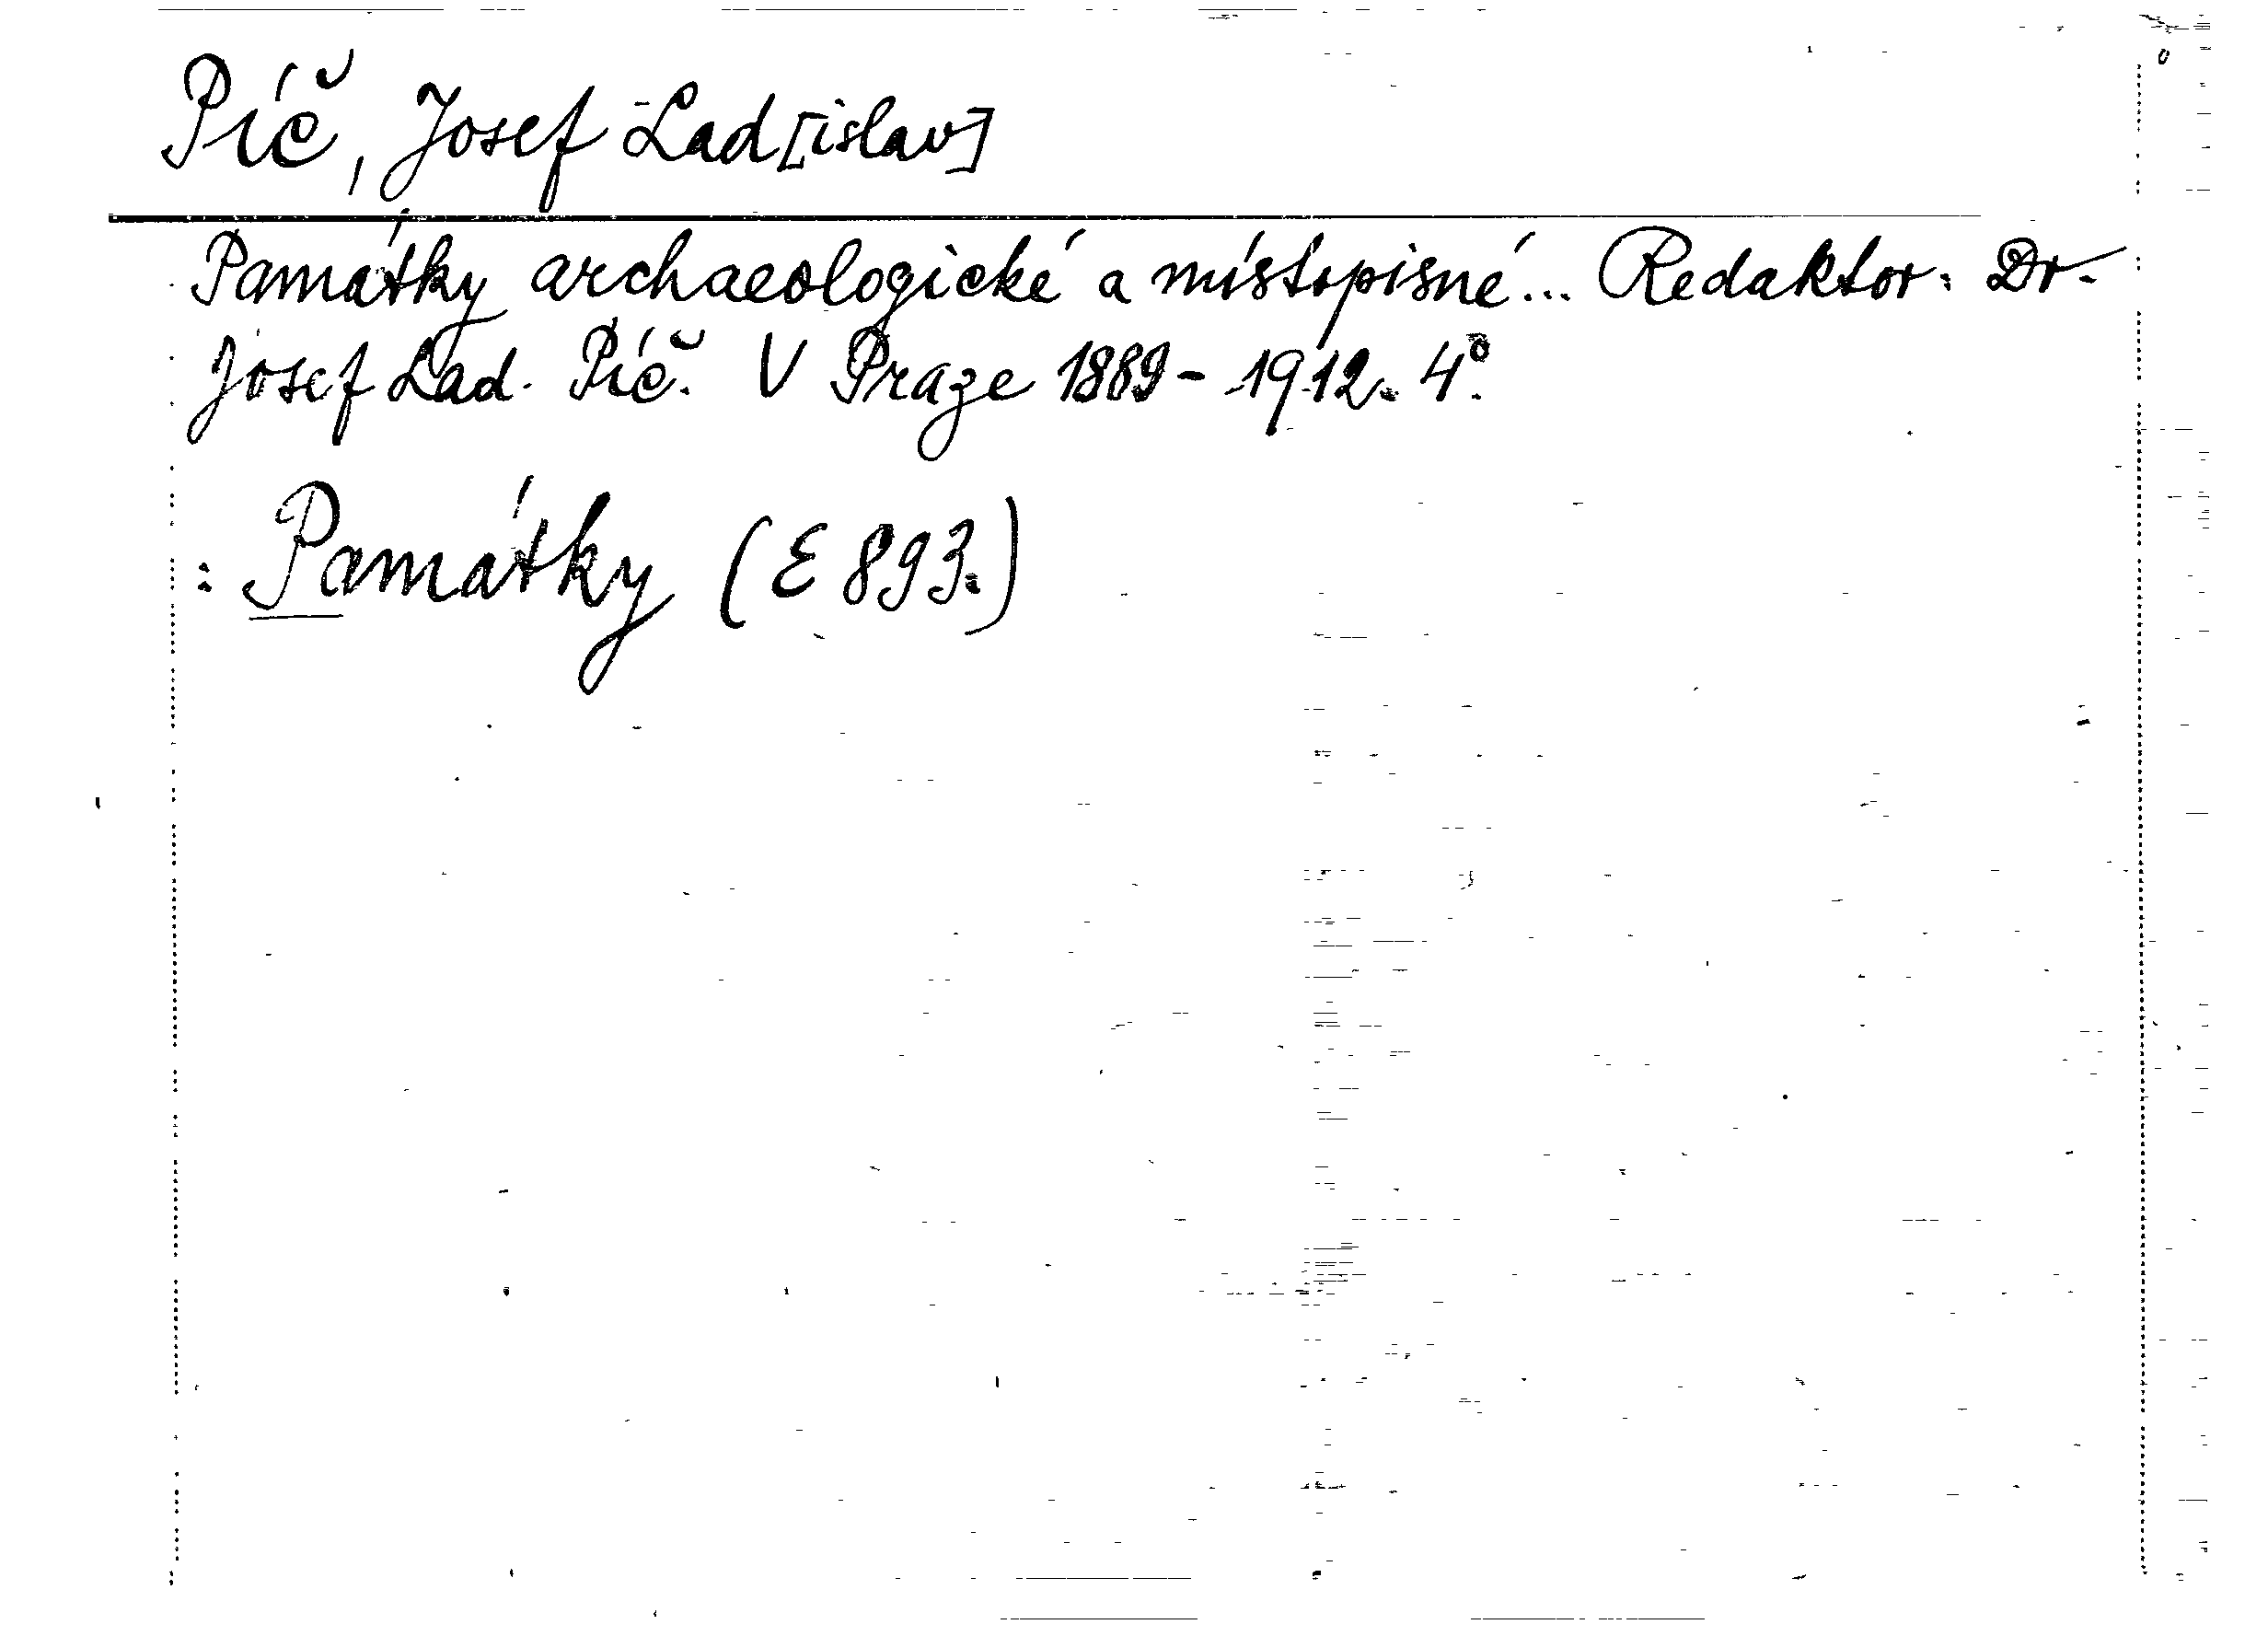 Píč, Josef Lad[islav]
Památky archaeologické a místopisné... Redaktor: Dr.
Josef Lad. Píč. V Praze 1889 - 1912. 4°.
: Památky (E 893.)